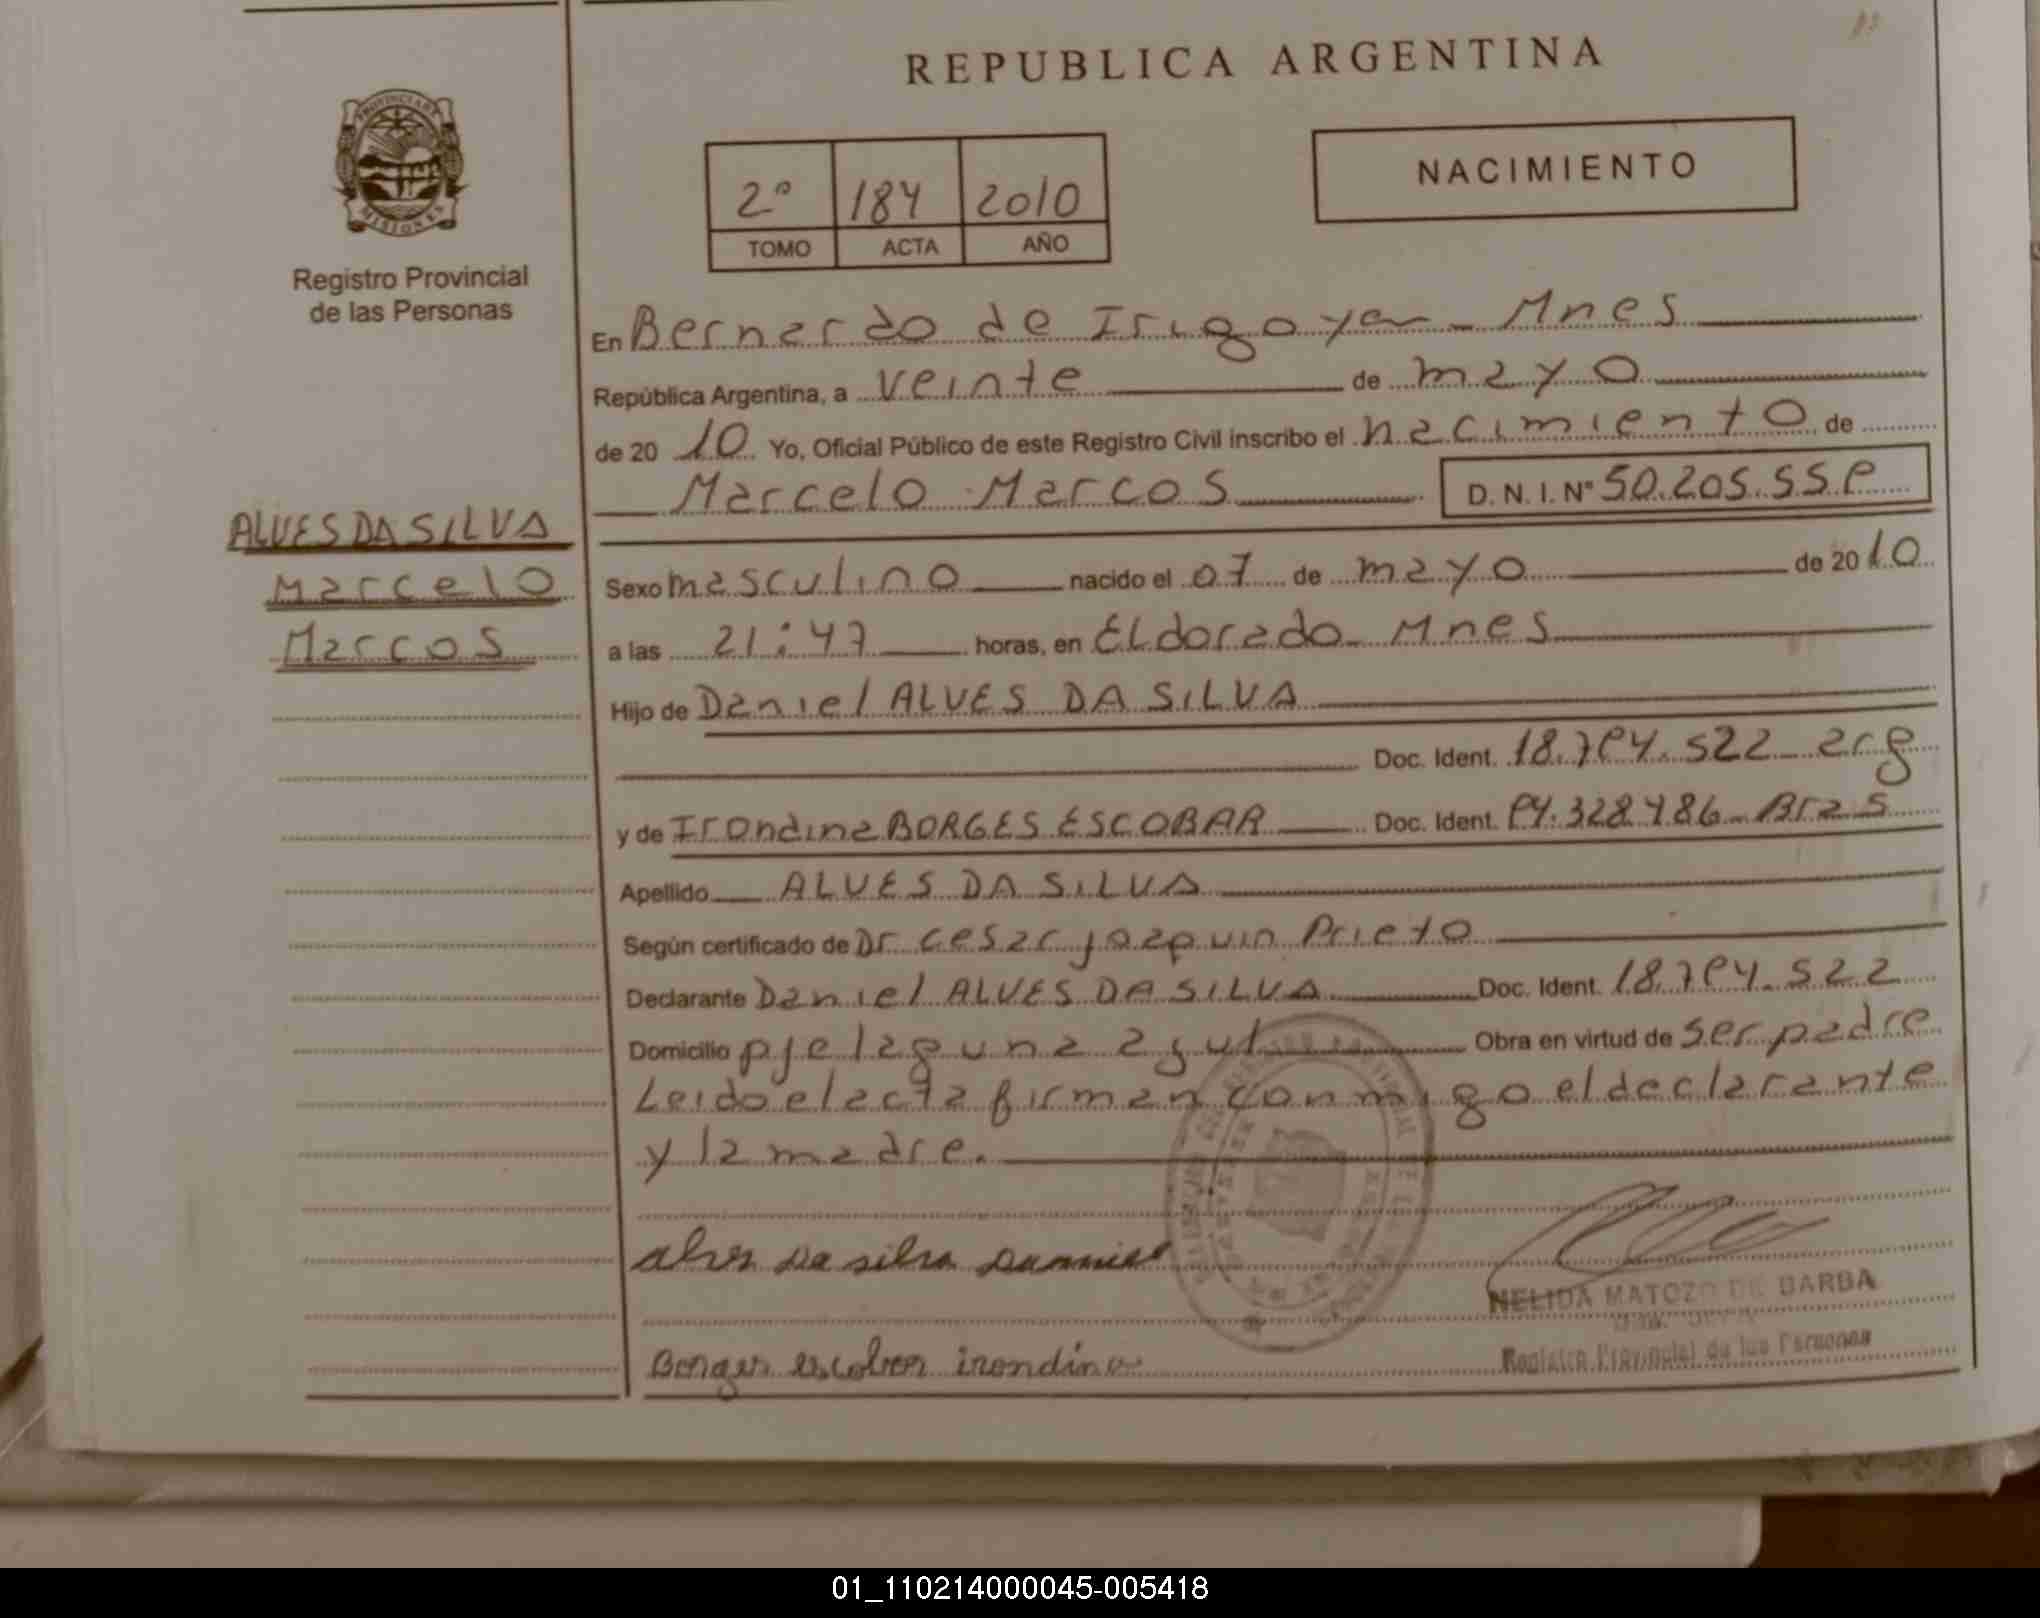 REPUBLICA ARGENTINA
PROVINCIA DE
MISIONES
Registro Provincial
de las Personas
2º 184 2010
TOMO ACTA AÑO
NACIMIENTO
En Bernardo de Irigoyen - Mnes
República Argentina, a veinte de mayo
de 20 10 Yo, Oficial Público de este Registro Civil inscribo el nacimiento de
Marcelo Marcos D.N.I.Nº 50.205.559
ALVES DA SILVA
Marcelo
Marcos
Sexo masculino nacido el 07 de mayo de 20 10
a las 21:47 horas, en Eldorado - Mnes
Hijo de Daniel ALVES DA SILVA
Doc. Ident. 18.794.522 - arg
y de Irondina BORGES ESCOBAR Doc. Ident. 94.328.486 - Bras
Apellido ALVES DA SILVA
Según certificado de Dr. Cesar Joaquin Prieto
Declarante Daniel ALVES DA SILVA Doc. Ident. 18.794.522
Domicilio pje laguna azul Obra en virtud de ser padre
Leido el acta firman conmigo el declarante
y la madre.
alves Da silva Danniel
Borges escobar irondina
NELIDA MATOZO DE BARBA
Registro Provincial de las Personas
01_110214000045-005418